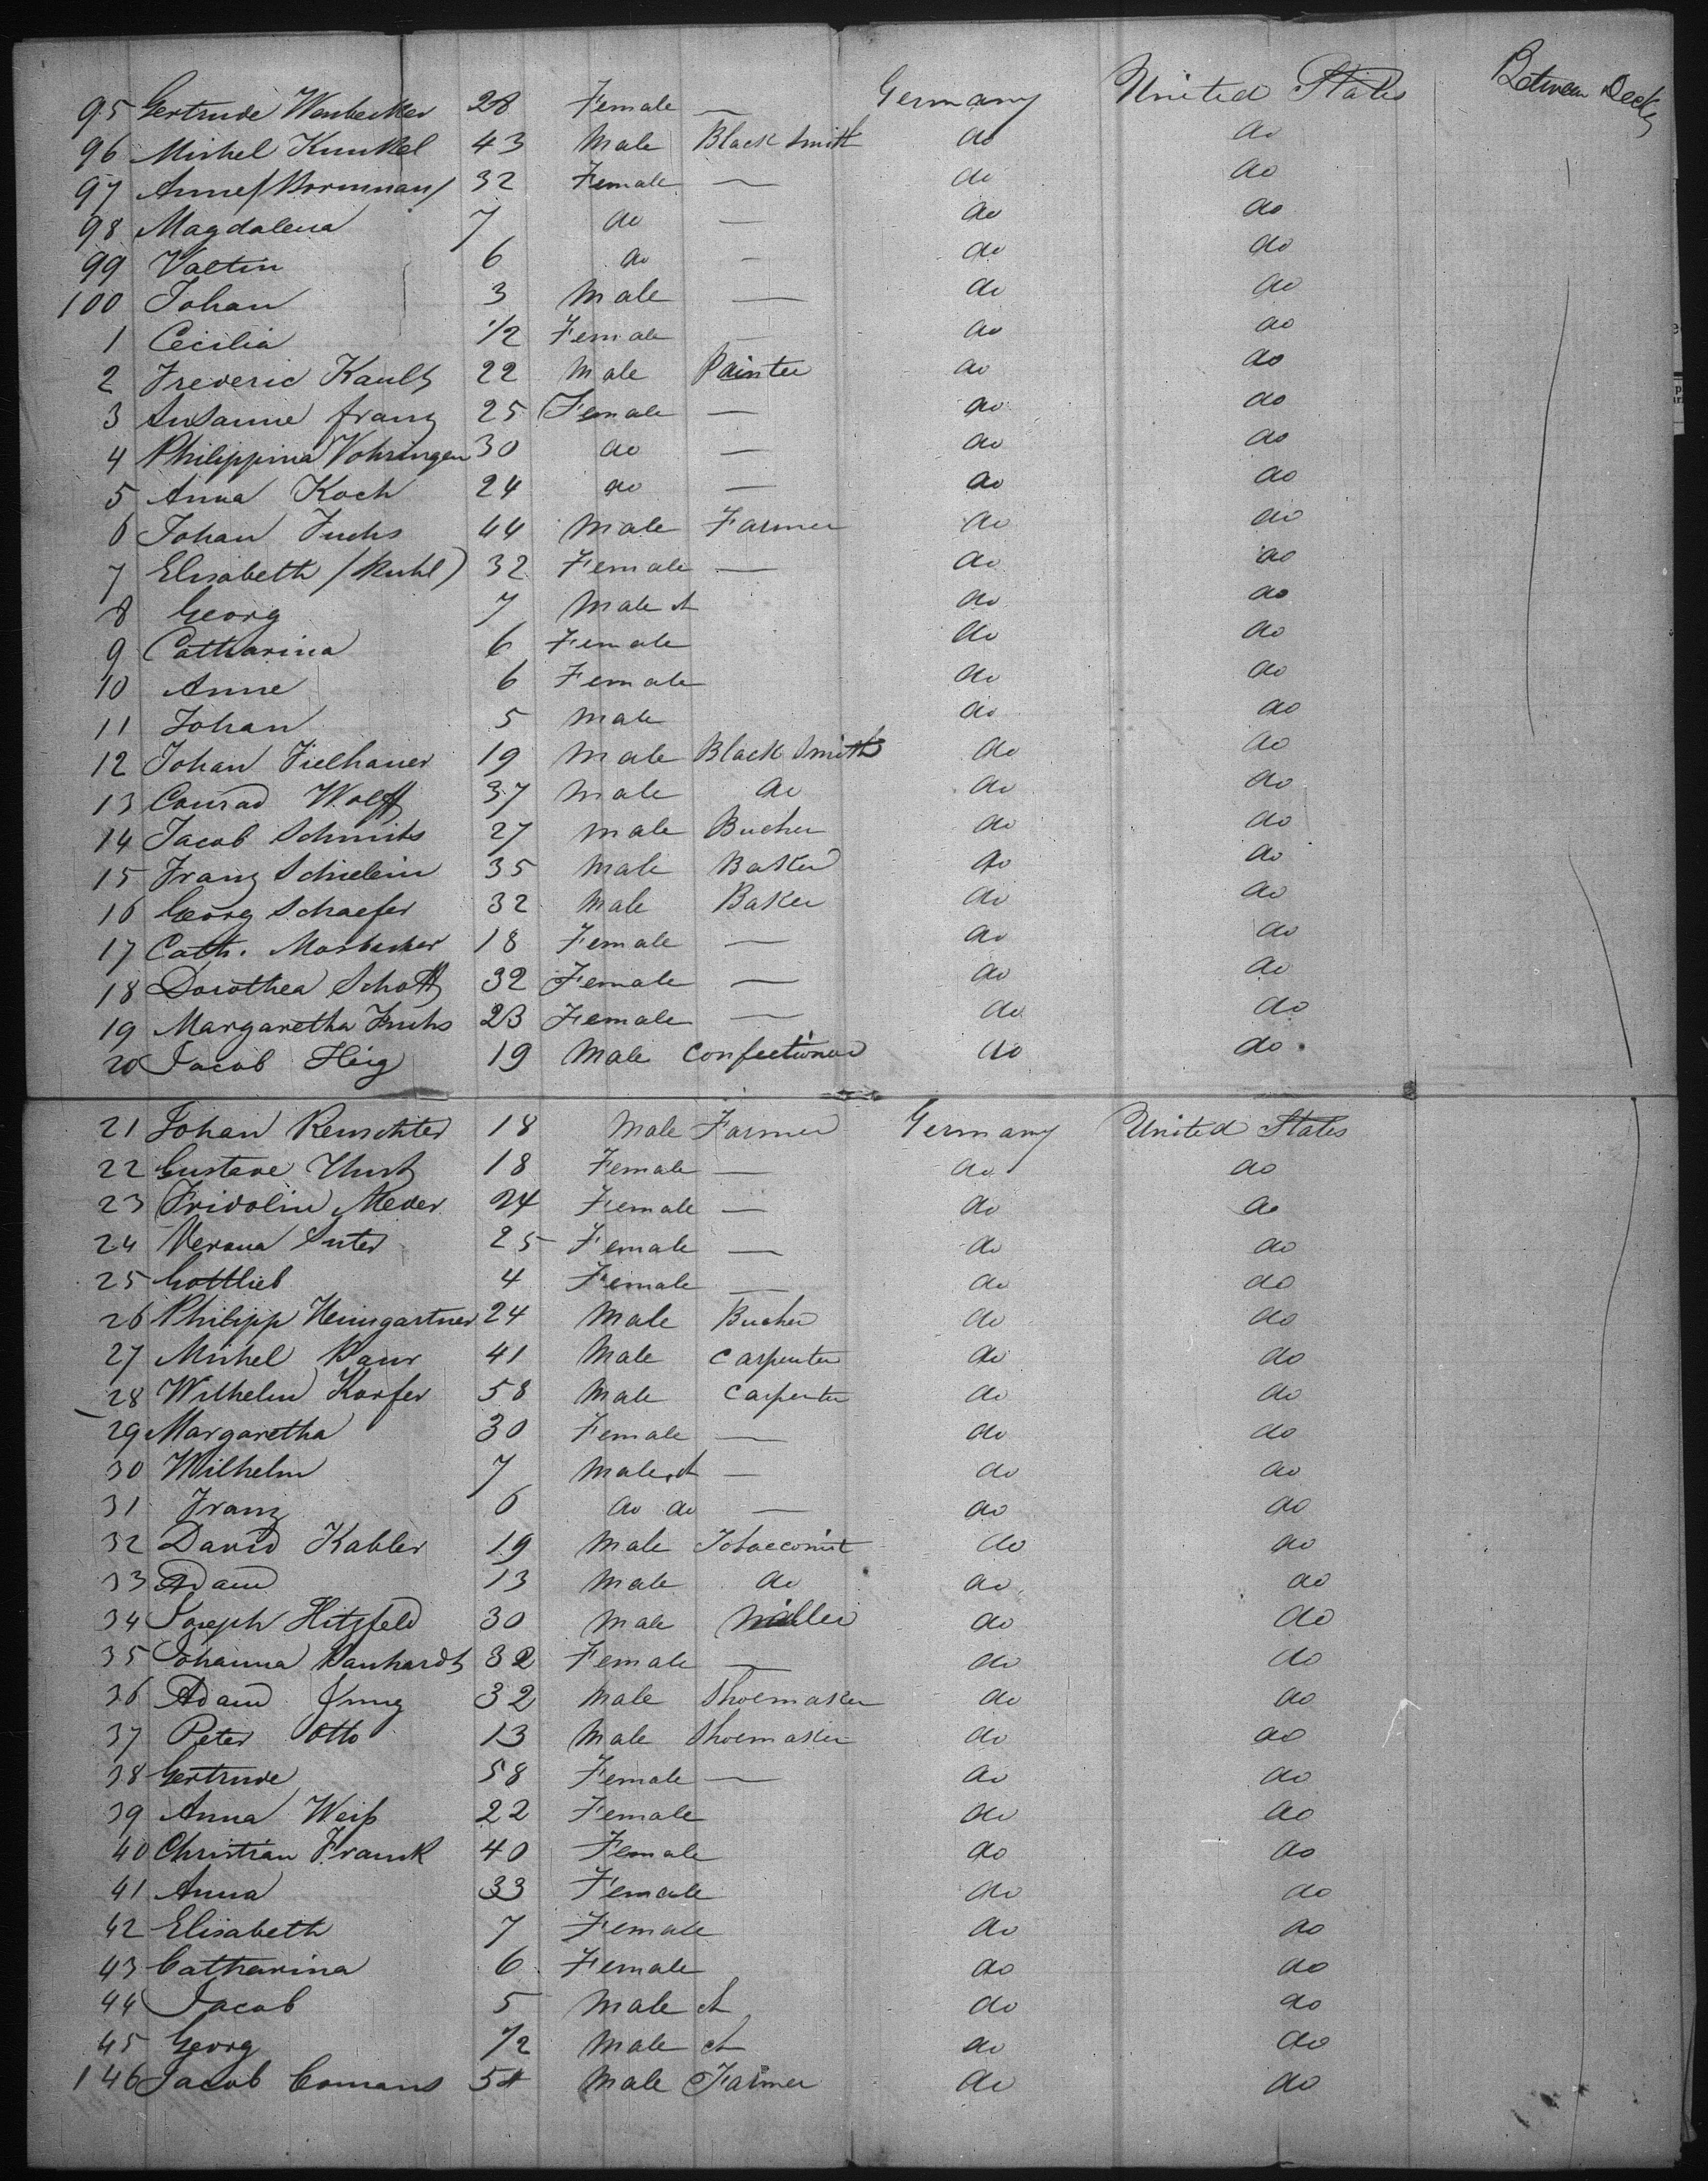 95 Gertrude Wambecker 28 Female — Germany United States Between Decks
96 Michel Kunkel 43 Male Black Smith do do
97 Anne / Bormman / 32 Female — do do
98 Magdalena 7 do — do do
99 Valtin 6 do — do do
100 Johan 3 Male — do do
1 Cecilia 1/2 Female do do
2 Frederic Kault 22 Male Painter do do
3 Susanne Franz 25 Female — do do
4 Philippina Vohringen 30 do — do do
5 Anna Koch 24 do — do do
6 Johan Fuchs 44 Male Farmer do do
7 Elisabeth / Ruhl ) 32 Female — do do
8 Georg 7 Male ch do do
9 Catharina 6 Female do do
10 Anne 6 Female do do
11 Johan 5 Male do do
12 Johan Fielhauer 19 Male Black Smith do do
13 Conrad Wolff 37 Male do do do
14 Jacob Schmits 27 Male Bucher do do
15 Franz Schielein 35 Male Baker do do
16 Georg Schaefer 32 Male Baker do do
17 Cath. Mosbecker 18 Female — do do
18 Dorothea Schott 32 Female — do do
19 Margaretha Fuchs 23 Female — do do
20 Jacob Heig 19 Male Confectioner do do
21 Johan Renschter 18 Male Farmer Germany United States
22 Gustave 18 Female — do do
23 Fridolin Meder 24 Female — do do
24 Verona Suter 25 Female — do do
25 Gottlieb 4 Female — do do
26 Philipp Heimgartner 24 Male Bucher do do
27 Michel Baur 41 Male Carpenter do do
28 Wilhelm Korfer 58 Male Carpenter do do
29 Margaretha 30 Female — do do
30 Wilhelm 7 Male ch — do do
31 Franz 6 do do — do do
32 David Kabler 19 Male Tobacconist do do
33 Adam 13 Male do do do
34 Joseph Hitzfeld 30 Male Miller do do
35 Johanna Banhardt 32 Female — do do
36 Adam Jung 32 Male Shoemaker do do
37 Peter Otto 13 Male Shoemaker do do
38 Gertrude 58 Female — do do
39 Anna Weiß 22 Female do do
40 Christian Frank 40 Female do do
41 Anna 33 Female do do
42 Elisabeth 7 Female do do
43 Catharina 6 Female do do
44 Jacob 5 Male ch do do
45 Georg 1/2 Male ch do do
146 Jacob Comans 54 Male Farmer do do